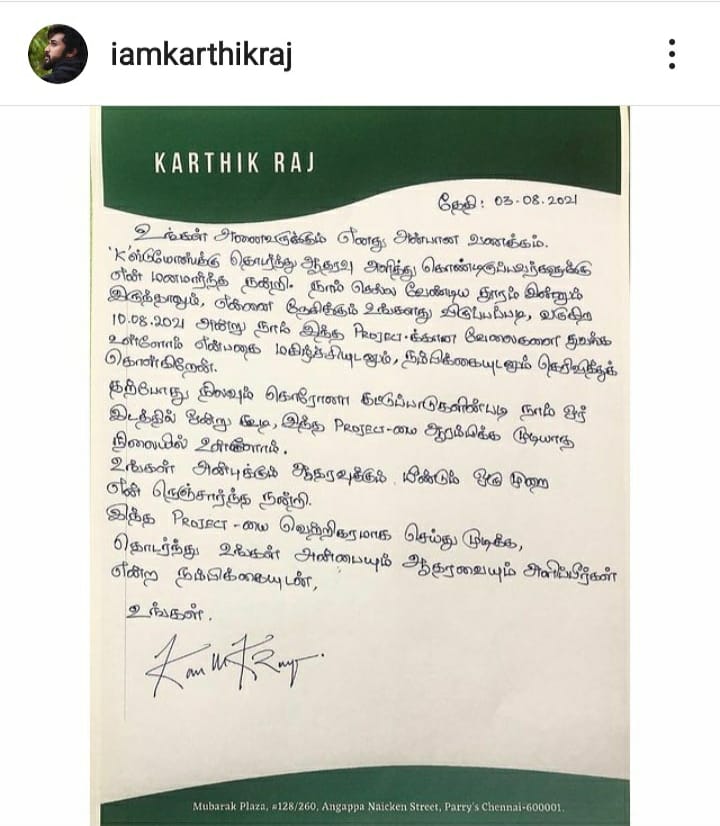 iamkarthikraj
KARTHIK RAJ
தேதி: 03-08.2021
உங்கள் அனைவருக்கும் எனது அன்பான வணக்கம்.
தொடர்ந்து ஆதரவு அளித்து கொண்டிருப்பவர்களுக்கு
என் மனமார்ந்த நன்றி. நாம் செல்ல வேண்டிய தூரம் இன்னும்
இருந்தாலும், என்னை நேசிக்கும் உங்களது விருப்பப்படி, வருகிற
10.08.2021 அன்று நாம் இந்த PROJECT-க்கான வேலைகளை துவங்க
உள்ளோம் என்பதை மகிழ்ச்சியுடனும், நம்பிக்கையுடனும் தெரிவித்துக்
கொள்கிறேன்.
தற்போது நிலவும் கொரோனா கட்டுப்பாடுகளின்படி நாம் ஓர்
இடத்தில் ஒன்று கூடி, இந்த PROJECT-யை ஆரம்பிக்க முடியாத
நிலையில் உள்ளோம்.
உங்கள் அன்புக்கும் ஆதரவுக்கும் மீண்டும் ஒரு முறை
என் நெஞ்சார்ந்த நன்றி.
இந்த PROJECT-யை வெற்றிகரமாக செய்து முடிக்க,
தொடர்ந்து உங்கள் அன்பையும் ஆதரவையும் அளிப்பீர்கள்
என்ற நம்பிக்கையுடன்,
உங்கள்.
Mubarak Plaza, #128/260, Angappa Naicken Street, Parry's Chennai-600001.